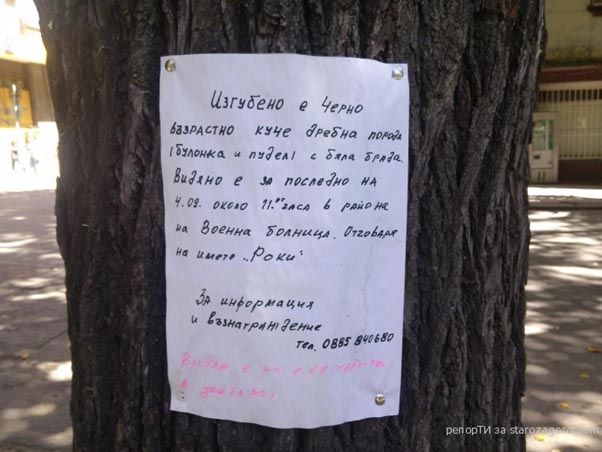 Изгубено е Черно
възрастно куче дребна порода
(булонка и пудел) с бяла брада.
Видяно е за последно на
4.09. около 11.00 часа в района
на Военна болница. Отговаря
на името „Роки“
За информация
и възнаграндение
тел. 0885 840680
Видян е на
в центъра,
репорТИ за starozagorci.com